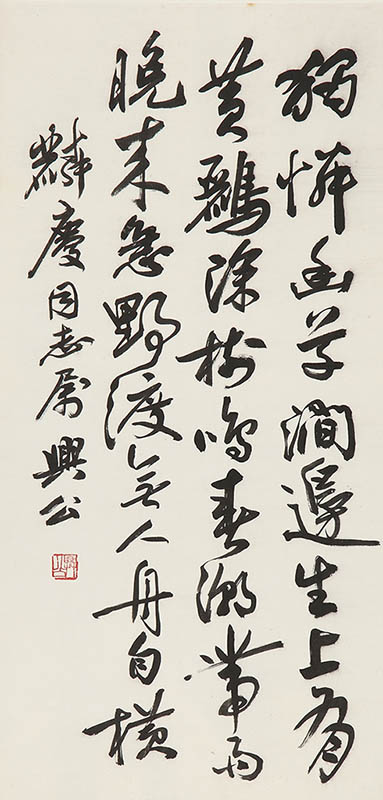 獨憐幽草澗邊生上有
黃鸝深樹鳴春潮帶雨
晚來急野渡無人舟自橫
麟慶同志属興公